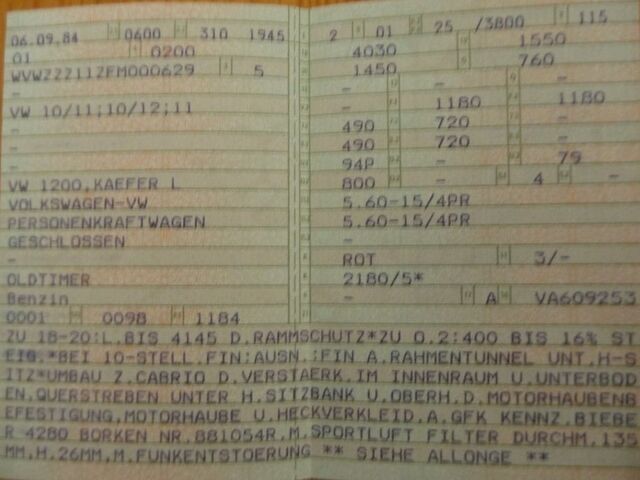 06.09.84 0600 310 1945
01 0200
WVWZZZ11ZFM000629 5
-
VW 10/11;10/12,11
-
-
-
VW 1200,KAEFER L
VOLKSWAGEN-VW
PERSONENKRAFTWAGEN
GESCHLOSSEN
-
OLDTIMER
Benzin
0001 0098 1184
2 01 25 /3800 115
4030 1550
1450 760
- - -
- 1180 1180
490 720 -
490 720 -
94P - 79
800 - 4 -
5.60-15/4PR
5.60-15/4PR
-
ROT 3/-
2180/5*
- A VA609253
ZU 18-20:L.BIS 4145 D.RAMMSCHUTZ*ZU 0.2:400 BIS 16% ST
EIG.*BEI 10-STELL.FIN:AUSN.:FIN A.RAHMENTUNNEL UNT.H-S
ITZ*UMBAU Z.CABRIO D.VERSTAERK.IM INNENRAUM U.UNTERBOD
EN,QUERSTREBEN UNTER H.SITZBANK U.OBERH.D.MOTORHAUBENB
EFESTIGUNG,MOTORHAUBE U.HECKVERKLEID.A.GFK KENNZ.BIEBE
R 4280 BORKEN NR.881054R.M.SPORTLUFT FILTER DURCHM.135
MM,H.26MM,M.FUNKENTSTOERUNG ** SIEHE ALLONGE **